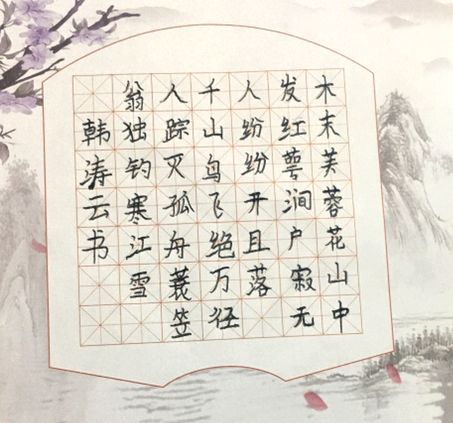 木末芙蓉花山中
发红萼涧户寂无
人纷纷开且落
千山鸟飞绝万径
人踪灭孤舟蓑笠
翁独钓寒江雪
韩涛云书